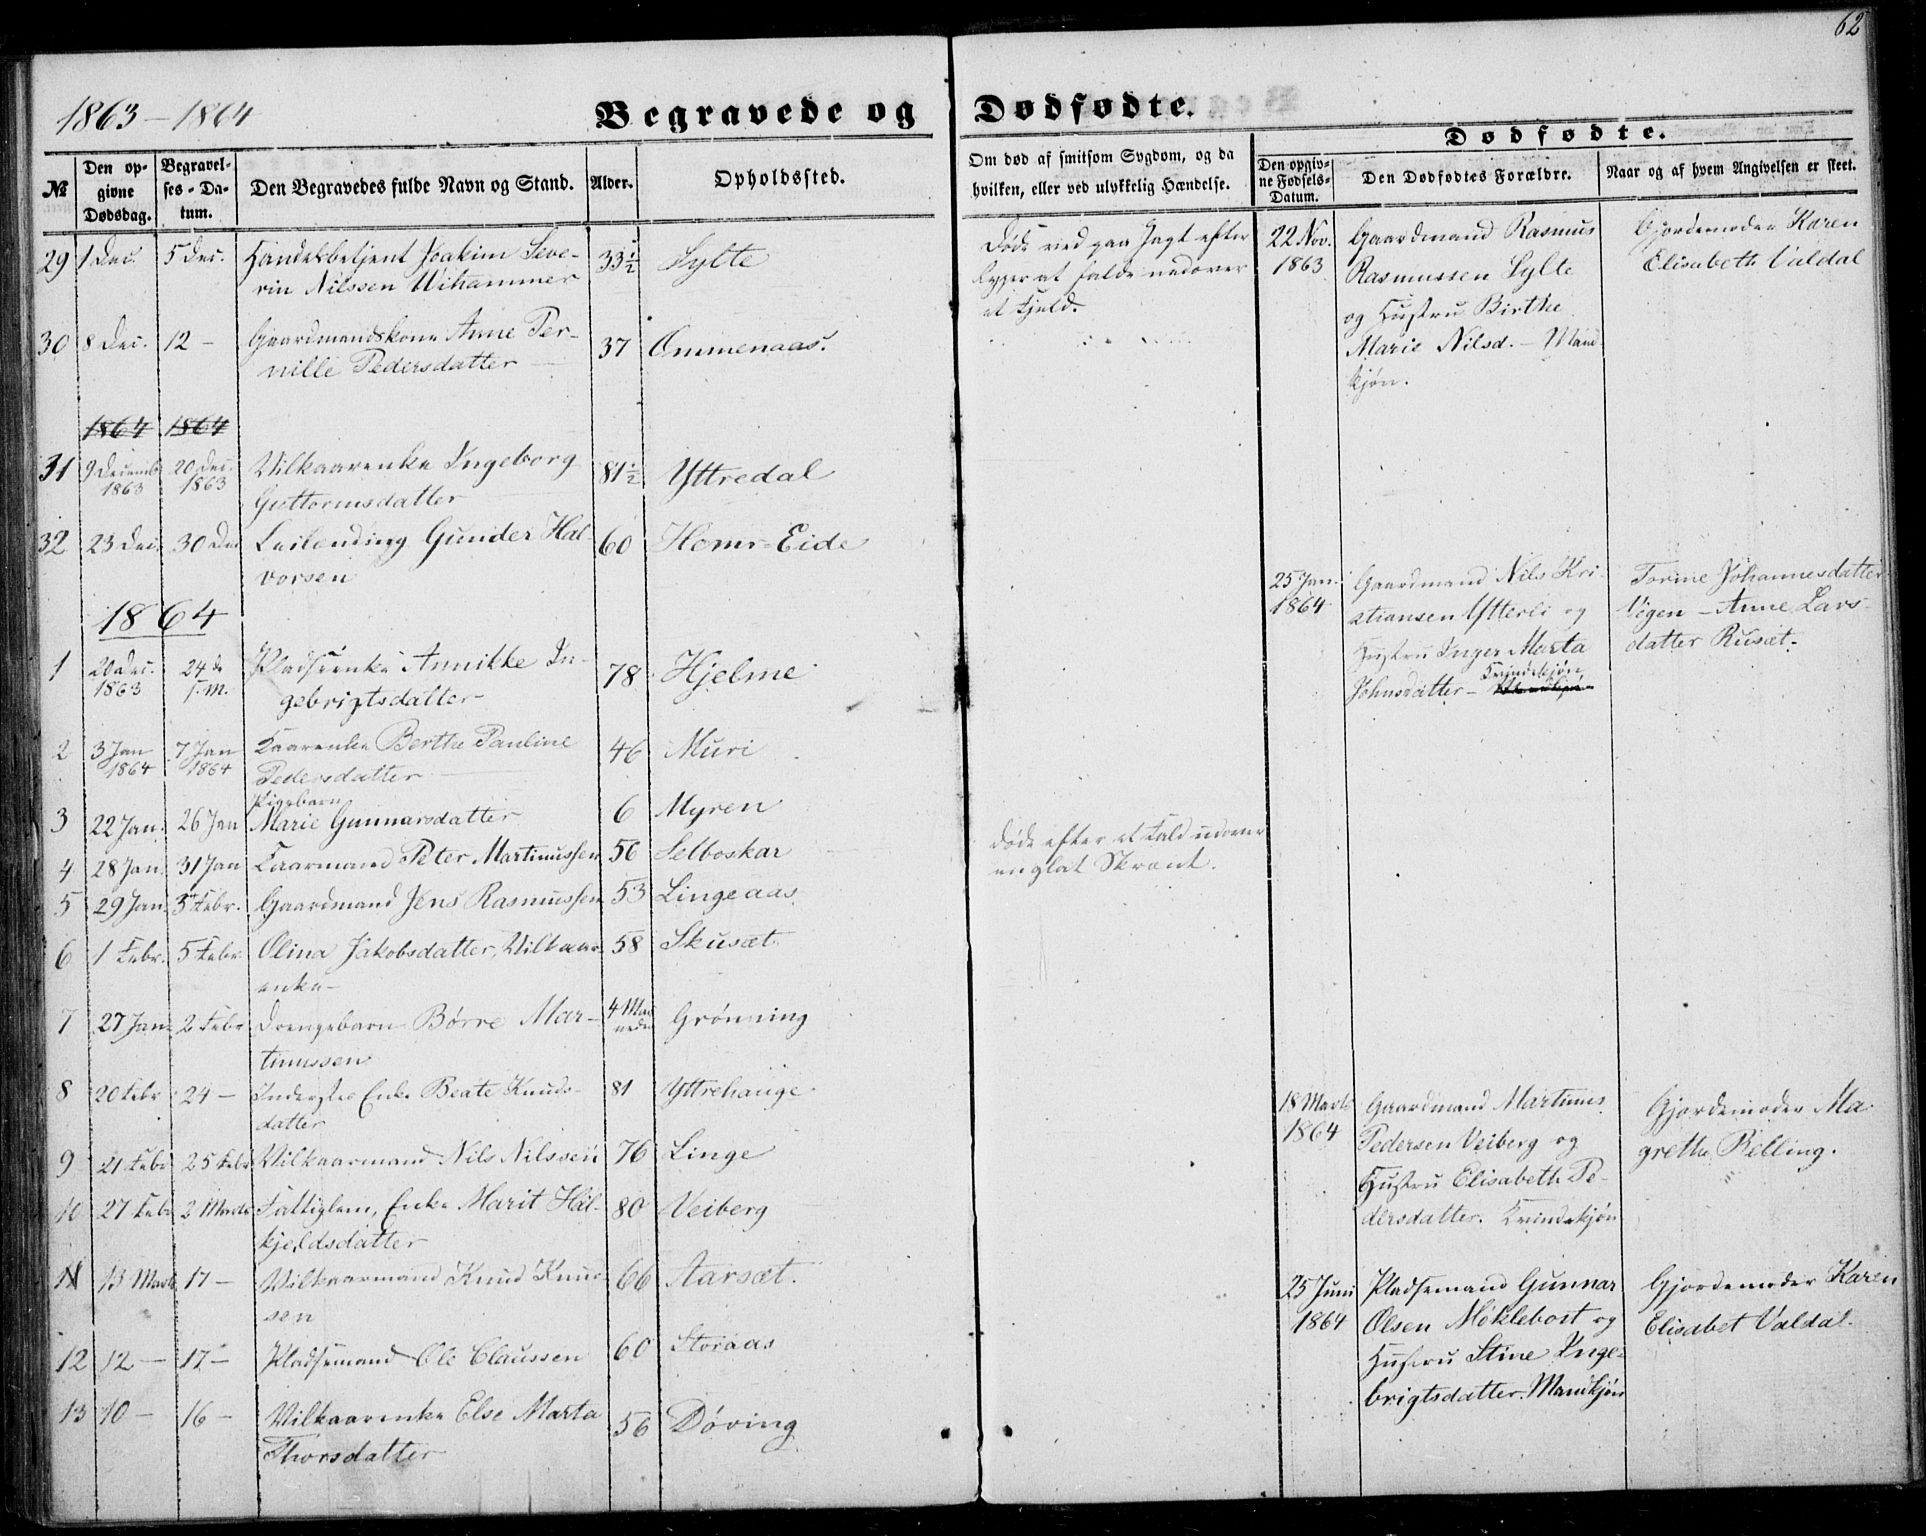 62
1863–1864
Begravede og Dødfødte.
№
Den opgivne Dødsdag.
Begravelses-Datum.
Den Begravedes fulde Navn og Stand.
Alder.
Opholdssted.
Om død af smitsom Sygdom, og da
hvilken, eller ved ulykkelig Hændelse.
Dødfødte.
Den opgivne Fødsels-Datum.
Den Dødfødtes Forældre.
Naar og af hvem Angivelsen er skeet.
29 1 Dec. 5 Dec. Handelsbetjent Joakim Seve- 33½ Sylte
rin Nilssen Uthammer
30 8 Dec. 12 – Gaardmandskone Anne Per- 37 Ommenaas.
nille Pedersdatter
1864 1864
31 9 Decemb 1863 20 Dec. 1863 Vilkaarenke Ingeborg 81½ Yttredal
Guttormsdatter
32 23 Dec. 30 Dec Leilending Gunder Hal- 60 Horns-Eide
vorsen
1864
1 20 Dec. 1863 24 de s. M. Pladsenke Annikke In- 78 Hjelme
gebrigtsdatter
2 3 Jan 1864 7 Jan 1864 Kaarenke Berthe Pauline 46 Muri
Pedersdatter
Pigebarn
3 22 Jan. 26 Jan Marie Gunnarsdatter 6 Myren
4 28 Jan. 31 Jan Kaarmand Peter Martinussen 56 Selboskar
5 29 Jan. 3 Febr. Gaardmand Jens Rasmussen 53 Lingeaas
6 1 Febr. 5 Febr. Olina Jakobsdatter, Vilkaar- 58 Skusæt
enke –
7 27 Jan. 2 Febr Drengebarn Børre Mar- 4 Maaneder Grønning
tinussen
8 20 Febr 24 – Inderste Enke Beate Knuds- 81 Yttrehauge
datter
9 21 Febr 25 Febr Vilkaarmand Nils Nilssen 76 Linge
10 27 Febr 2 Marts Fattiglem, Enke Marit Hal- 80 Veiberg
kjeldsdatter
11 13 Marts 17 – Vilkaarmand Knud Knud- 66 Aarsæt.
sen
12 12 – 17 – Pladsemand Ole Claussen 60 Storaas
13 10 – 16 – Vilkaarenke Else Marta 56 Døving
Thorsdatter
Døde ved paa Jagt efter
Ryper at falde nedover
et Fjeld.
døde efter et Fald udover
en glat Skrænt.
22 Nov. 1863 Gaardmand Rasmus
Rasmussen Sylte
og Hustru Birthe
Marie Nilsd. – Mand
kjøn.
Gjordemoder Karen
Elisabeth Valdal
25 Jan. 1864 Gaardmand Nils Kri-
stiansen Ytterli og
Hustru Inger Marta
Johnsdatter – Kvindekjøn
Torine Johannesdatter
Vigen – Anne Lars-
datter Rusæt.
18 Marts 1864 Gaardmand Martinus
Pedersen Veiberg og
Hustru Elisabeth Pe-
dersdatter. Kvindekjøn
Gjordemoder Ma-
grethe Relling.
25 Juni 1864 Pladsemand Gunnar
Olsen Møklebost og
Hustru Stine Inge-
brigtsdatter. Mandkjøn
Gjordemoder Karen
Elisabet Valdal.